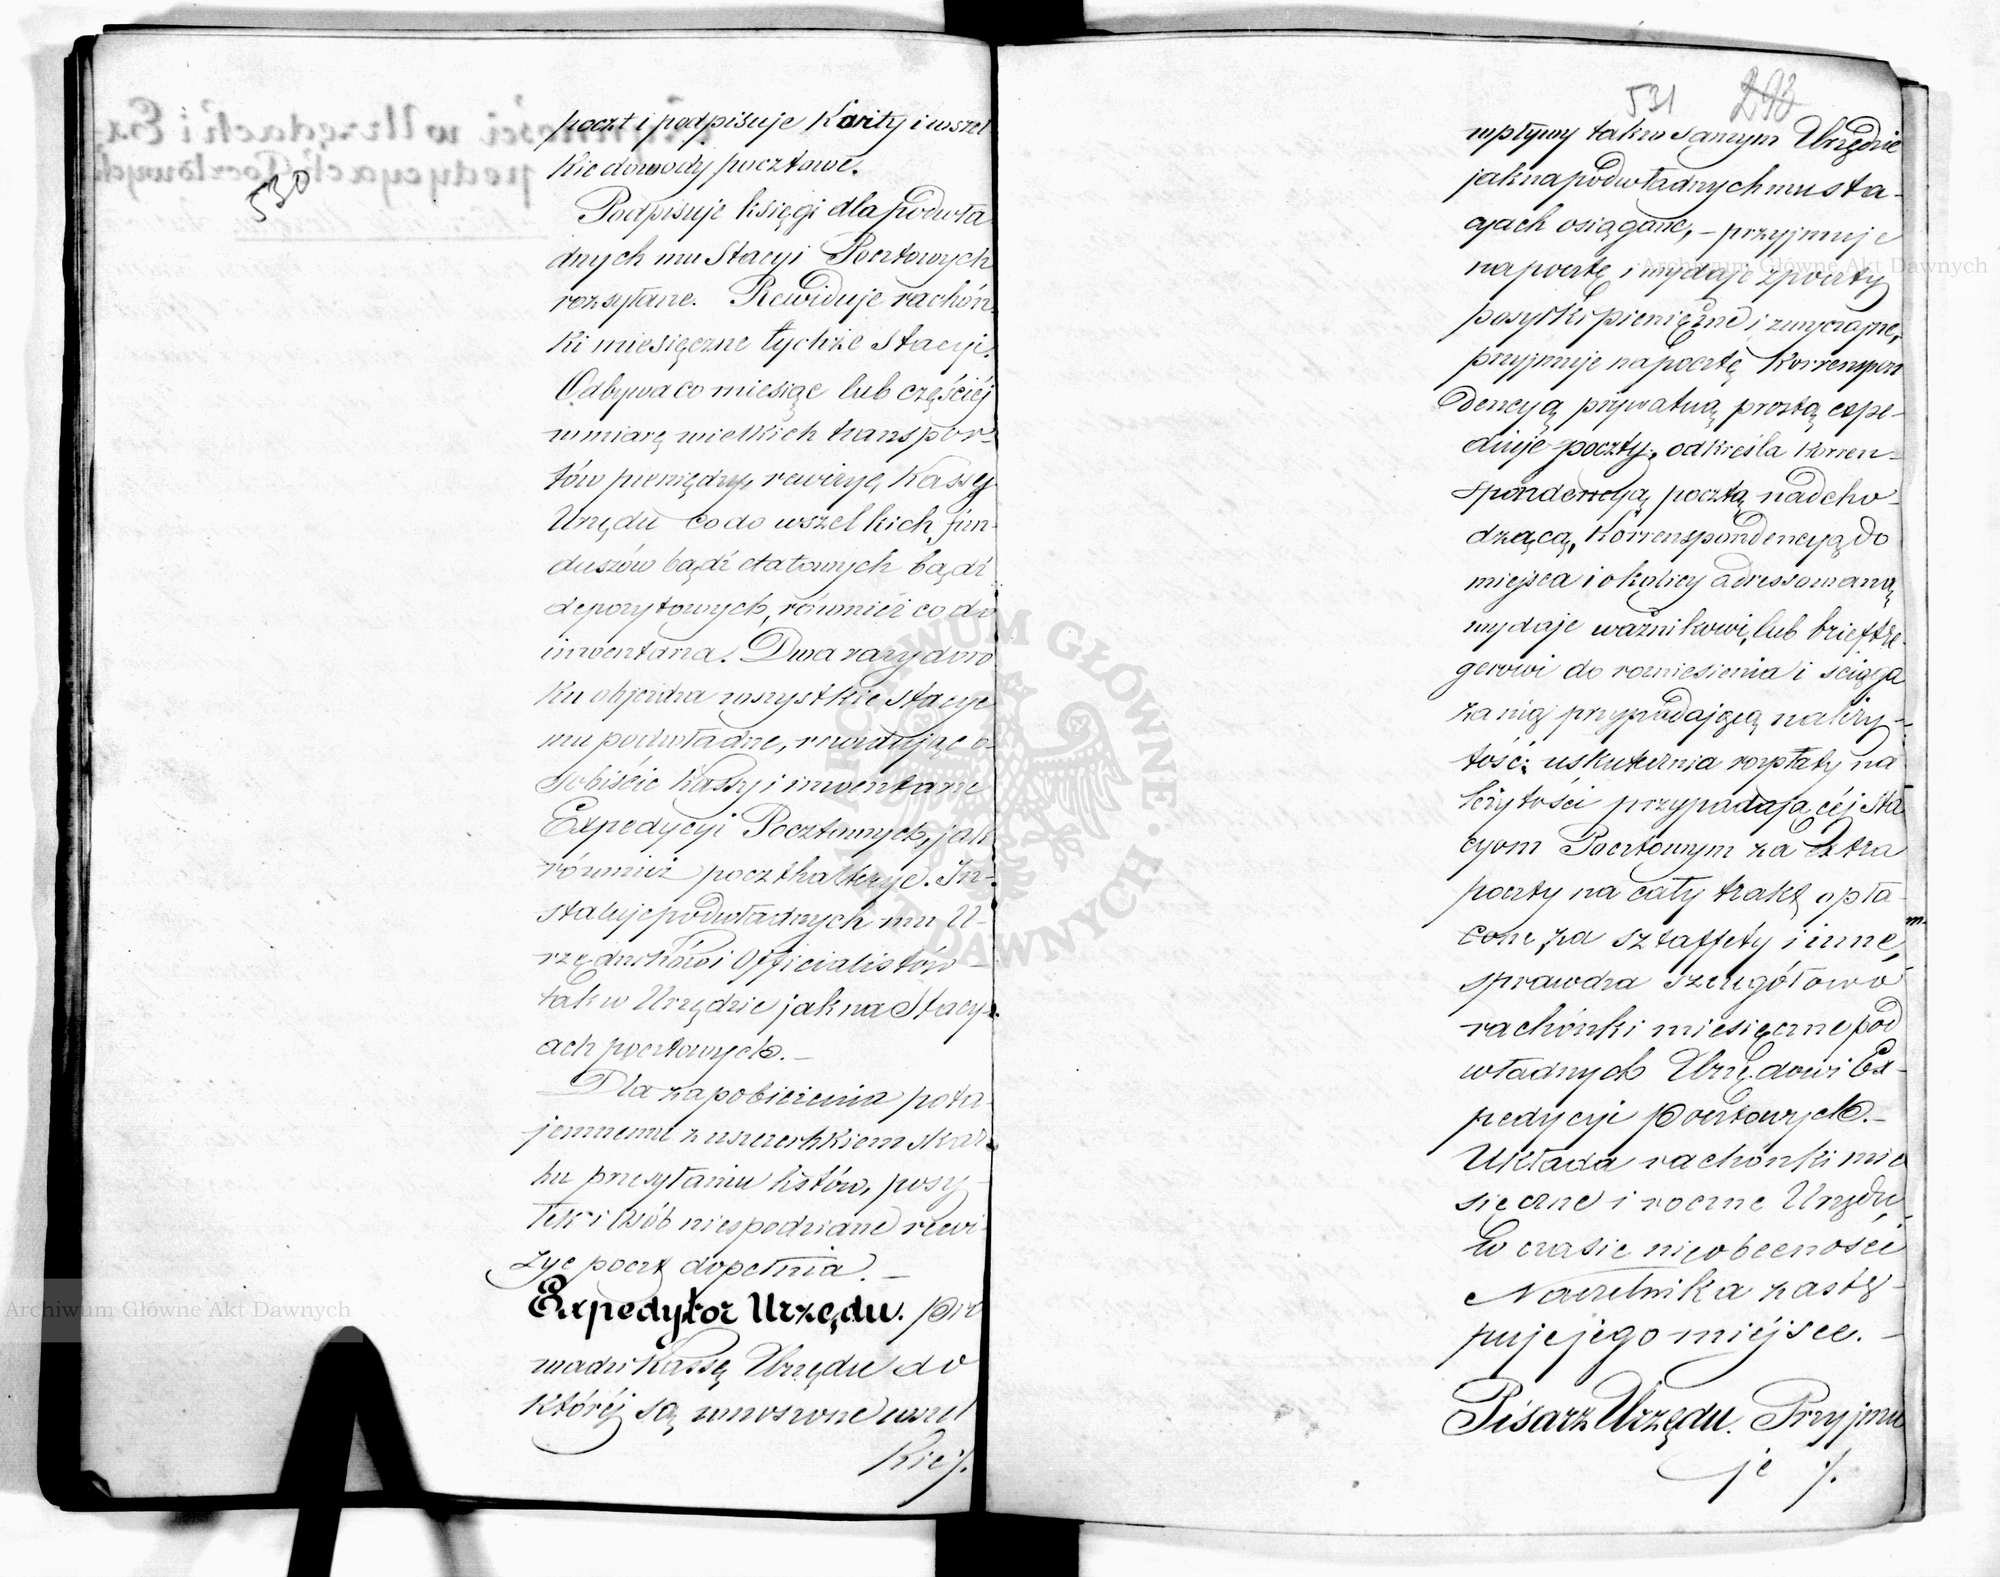 530
poczt i podpisuje Karty i wszel
kie dowody pocztowe.
Podpisuje księgi dla podwła
dnych mu Stacyi Pocztowych
rozsyłane. Rewiduje rachón
ki miesięczne tychże Stacyi.
Odbywa co miesiąc lub częściéj
w miarę wielkich transpor-
tów pieniędzy, rewizyę Kassy
Urzędu co do wszelkich fun-
duszów bądź etatowych bądź
depozytowych, również co do
inwentarza. Dwa razy do ro
ku objeżdża wszystkie stacye
mu podwładne, rewidując o-
sobiście Kassy i inwentarze
Expedycyi Pocztowych, jak
również poczthalterye. In-
staluje podwładnych mu U-
rzędników i Officialistów –
tak w Urzędzie jak na Stacy-
ach pocztowych. –
Dla zapobieżenia pota-
jemnemu z uszczerbkiem skar-
bu przesyłaniu listów, posy-
łek i osób niespodziane rewi
zye poczt dopełnia. –
Expedytor Urzędu. Pro
wadzi Kassę Urzędu do
któréj są wnoszone wszel
kie /.
531 293
wpływy tak w samym Urzędzie
jak na podwładnych mu sta-
cyach osiągane, – przyjmuje
na pocztę i wydaje z poczty
posyłki pieniężne i zwyczajne,
przyjmuje na pocztę Korrespon
dencyą prywatną prostą expe-
diuje poczty, odkreśla Korren-
spondencyą pocztą nadcho-
dzącą, Korrenspondencyą do
miejsca i okolicy adressowaną
wydaje woźnikowi, lub brieftre-
gerowi do rozniesienia i ściąga
za nią przypadającą należy-
tość; uskutecznia rozpłaty na
leżytości przypadającéj Sta
cyom Pocztowym za Extra
poczty na cały trakt opła-
cone, za sztaffety i inne,
sprawdza szczegółowo
rachónki miesięczne pod
władnych Urzędowi Ex-
pedycyi Pocztowych. –
Układa rachónki mie
sięczne i roczne Urzędu,
W czasie nieobecności
Naczelnika zastę-
puje jego miéjsce. –
Pisarz Urzędu. Przyjmu
je /.
Archiwum Główne Akt Dawnych
Archiwum Główne Akt Dawnych
ARCHIWUM GŁÓWNE AKT DAWNYCH